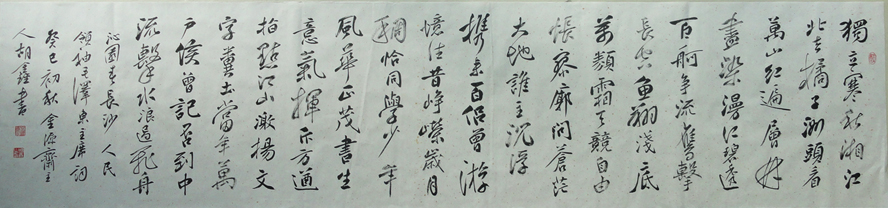 獨立寒秋湘江
北去橘子洲頭看
萬山紅遍層林
盡染漫江碧透
百舸争流鷹擊
長空魚翔淺底
萬類霜天競自由
悵寥廓問蒼茫
大地誰主沉浮
攜來百侶曾游
憶往昔崢嶸歲月
稠恰同學少年
風華正茂書生
意氣揮斥方遒
指點江山激揚文
字糞土當年萬
户侯曾記否到中
流擊水浪遏飛舟
沁園春長沙 人民
領袖毛澤東主席詞
癸巳初秋金源齋主
人胡鑫書